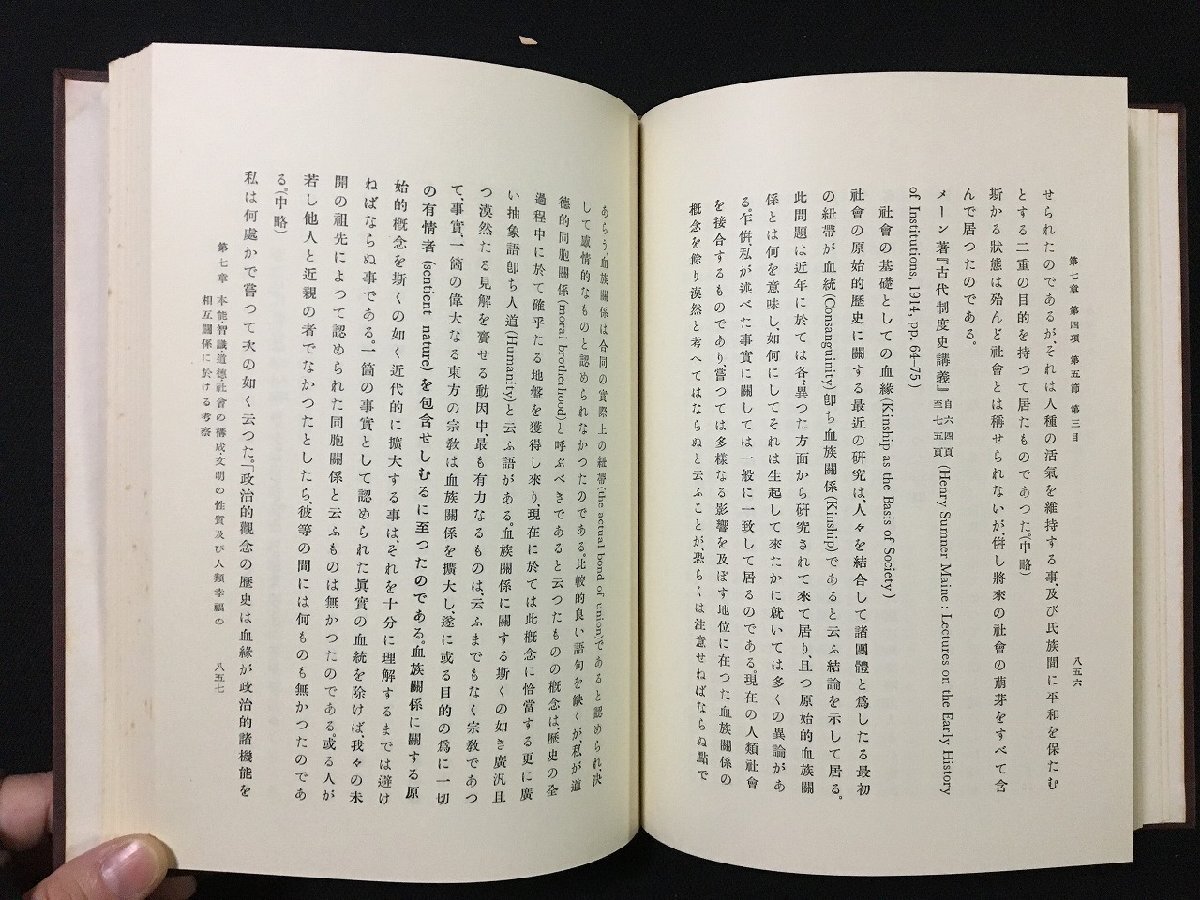 第七章 第四項 第五節 第三目
八五六
せられたのであるが、それは人種の活氣を維持する事、及び氏族間に平和を保たむ
とする二重の目的を持つて居たものであつた。(中略)
斯かる狀態は殆んど社會とは稱せられないが、併し將來の社會の萠芽をすべて含
んで居つたのである。
メーン著『古代制度史講義』自六四頁至七五頁(Henry Sumner Maine : Lectures on the Early History
of Institutions, 1914, pp. 64—75)
社會の基礎としての血緣(Kinship as the Basis of Society)
社會の原始的歷史に關する最近の硏究は、人々を結合して諸團體と爲したる最初
の紐帶が血統(Consanguinity)卽ち血族關係(Kinship)であると云ふ結論を示して居る。
此問題は近年に於ては各〻異つた方面から硏究されて來て居り、且つ原始的血族關
係とは何を意味し、如何にしてそれは生起して來たかに就いては多くの異論があ
る。乍併、私が述べた事實に關しては一般に一致して居るのである。現在の人類社會
を接合するものであり、嘗つては多樣なる影響を及ぼす地位に在つた血族關係の
槪念を餘り漠然と考へてはならぬと云ふことが、恐らくは注意せねばならぬ點で
あらう。血族關係は合同の實際上の紐帶(the actual bond of union)であると認められ、決
して感情的なものと認められなかつたのである。比較的良い語句を缺くが、私が道
德的同胞關係(moral brotherhood)と呼ぶべきであると云つたものの槪念は、歷史の全
過程中に於て確乎たる地盤を獲得し來り、現在に於ては此槪念に恰當する更に廣
い抽象語卽ち人道(Humanity)と云ふ語がある。血族關係に關する斯くの如き廣汎且
つ漠然たる見解を齎せる動因中、最も有力なるものは、云ふまでもなく宗敎であつ
て、事實一箇の偉大なる東方の宗敎は血族關係を擴大し、遂に或る目的の爲に一切
の有情者(sentient nature)を包含せしむるに至つたのである。血族關係に關する原
始的槪念を斯くの如く近代的に擴大する事は、それを十分に理解するまでは避け
ねばならぬ事である。一箇の事實として認められた眞實の血統を除けば、我々の未
開の祖先によつて認められた同胞關係と云ふものは無かつたのである。或る人が
若し他人と近親の者でなかつたとしたら、彼等の間には何ものも無かつたのであ
る。(中略)
私は何處かで嘗つて次の如く云つた。「政治的觀念の歷史は血緣が政治的諸機能を
第七章 本能智識道德社會の構成文明の性質及び人類幸福の
相互關係に於ける考察
八五七